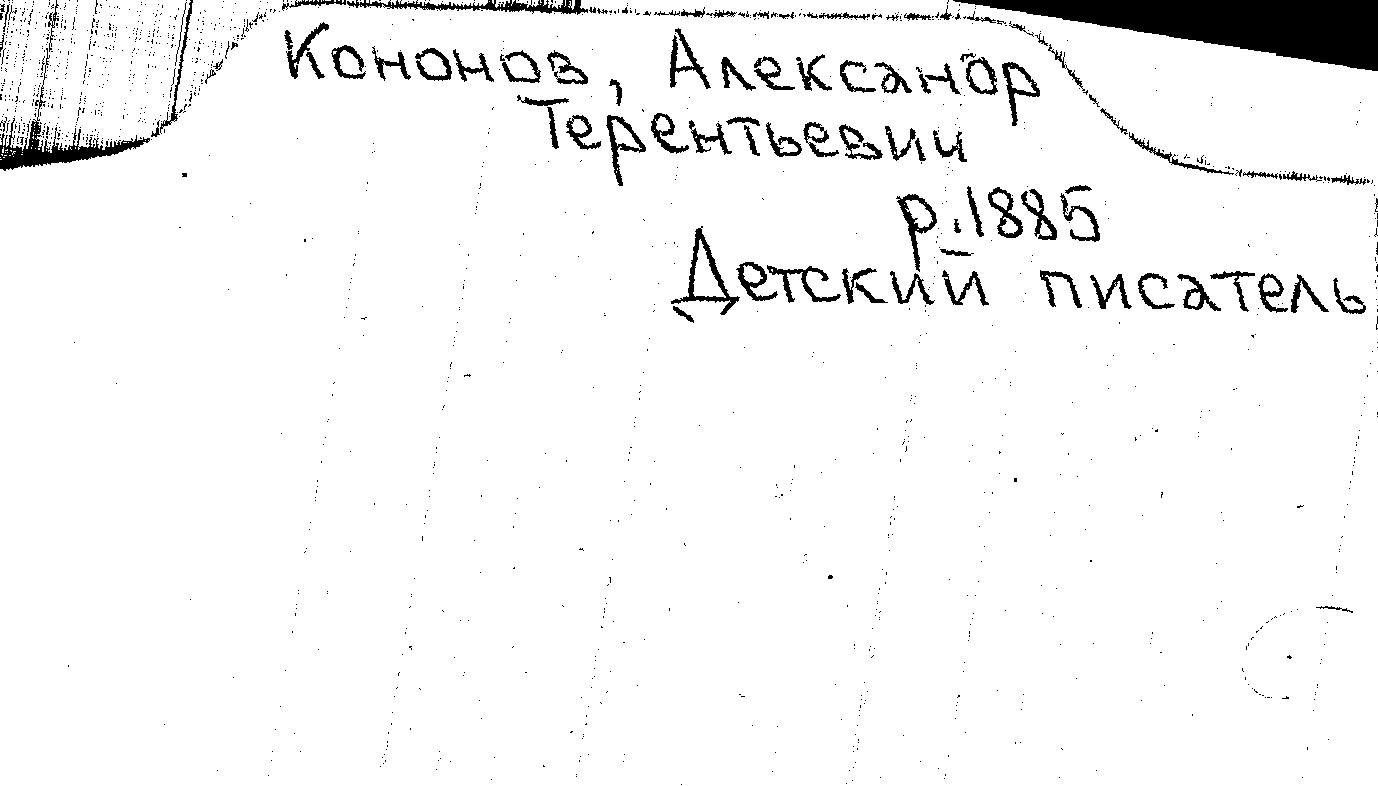 Кононов, Александр
Терентьевич
р. 1885
Детский писатель